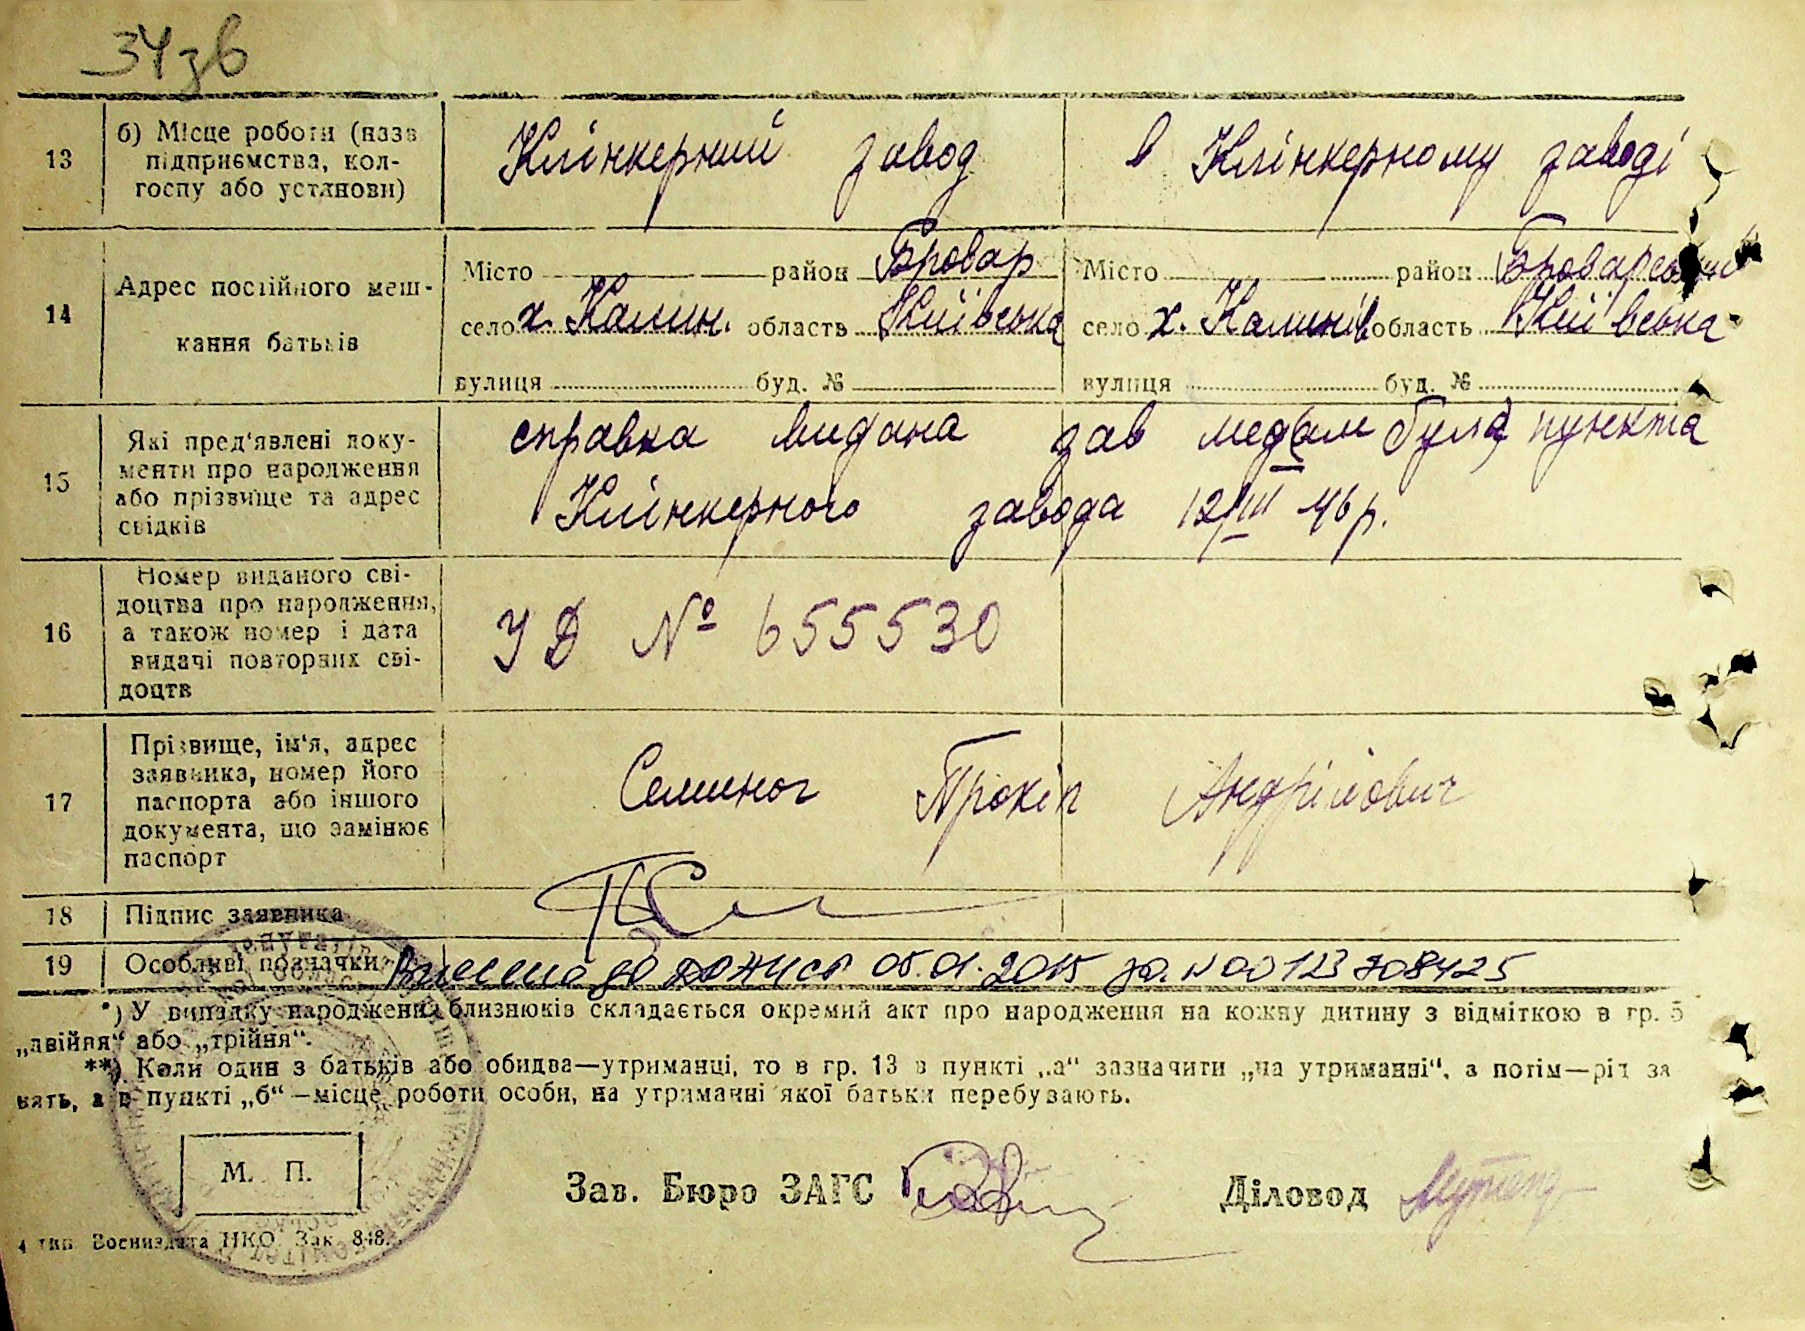 34зв
13
б) Місце роботи (назв
підприємства, кол-
госпу або установи)
Клінкерний завод
в Клінкерному заводі
14
Адрес постійного меш-
кання батьків
Місто район Бровар
село х. Калин. область Київська
вулиця буд. №
Місто район Броварський
село х. Калинів область Київська
вулиця буд. №
15
Які пред'явлені доку-
менти про народження
або прізвище та адрес
свідків
справка видана зав пункта
Клінкерного завода 12/III 46 р.
16
Номер виданого сві-
доцтва про народження,
а також номер і дата
видачі повторних сві-
доцтв
УД № 655530
17
Прізвище, ім'я, адрес
заявника, номер його
паспорта або іншого
документа, що замінює
паспорт
Семиног Прокіп Андрійович
18
Підпис заявника
19
Особливі позначки
05.01.2015 за N00123708425
*) У випадку народження близнюків складається окремий акт про народження на кожну дитину з відміткою в гр. 5
„двійня“ або „трійня“.
**) Коли один з батьків або обидва—утриманці, то в гр. 13 в пункті „а“ зазначити „на утриманні“, а потім—рід за
нять, а в пункті „б“—місце роботи особи, на утриманні якої батьки перебувають.
М. П.
Зав. Бюро ЗАГС
Діловод
4 тип Воениздата НКО Зак. 848.